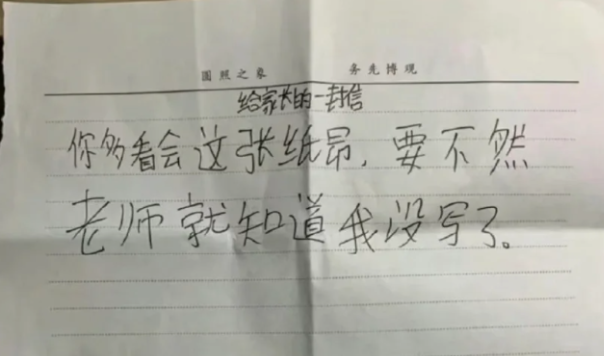 圆照之象 务先博观
给家长的一封信
你多看会这张纸昂，要不然
老师就知道我没写了。